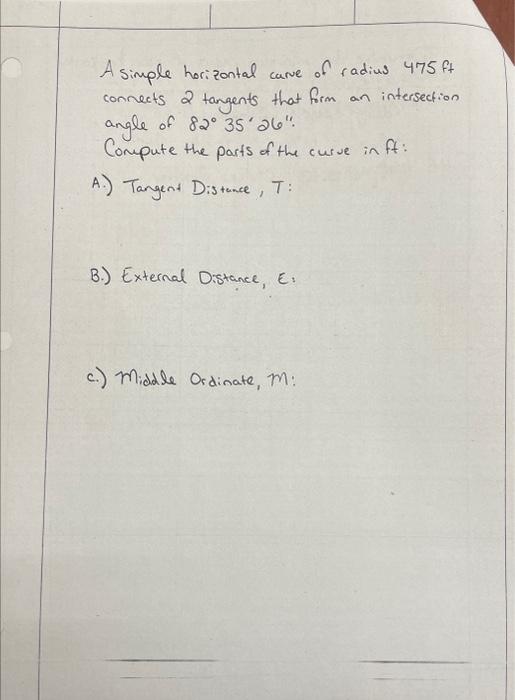 A simple horizontal curve of radius 475 ft
connects 2 tangents that form an intersection
angle of 82° 35' 26".
Compute the parts of the curve in ft:
A.) Tangent Distance, T:
B.) External Distance, E:
C.) Middle Ordinate, M: